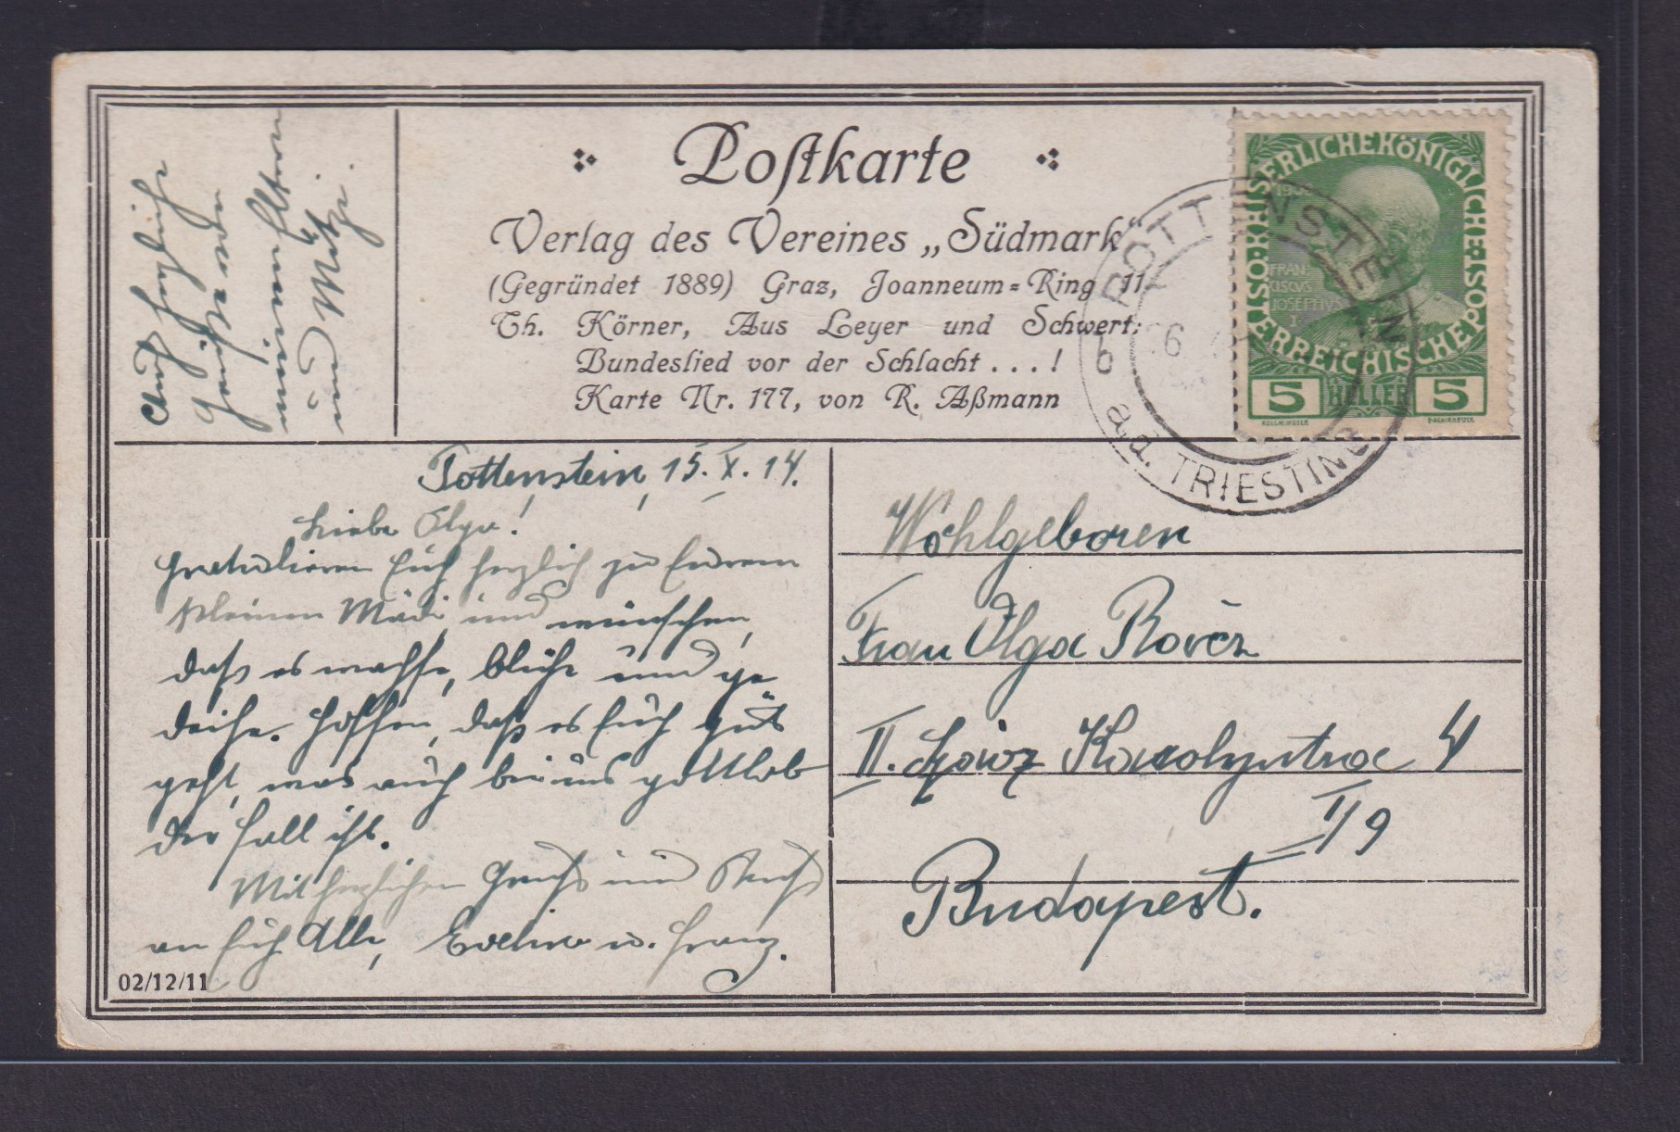 Postkarte
Verlag des Vereines „Südmark“
(Gegründet 1889) Graz, Joanneum=Ring 11.
Th. Körner, Aus Leyer und Schwert:
Bundeslied vor der Schlacht . . . !
Karte Nr. 177, von R. Aßmann
KAISERLICHE KÖNIGLICHE
ÖSTERREICHISCHE POST
1908
FRAN
CISCVS
JOSEPHVS
I
5 HELLER 5
POTTENSTEIN
a.d. TRIESTING
b
6
Auch herzliche
Grüße von
meinen Eltern
und Mitzi.
Pottenstein, 15. X. 14.
Liebe Olga!
Gratulieren Euch herzlich zu Eurem
kleinen Mädi und wünschen,
daß es wachse, blühe und ge
deihe. Hoffen, daß es Euch gut
geht, was auch bei uns gottlob
der Fall ist.
Mit herzlichen Gruß und Kuß
an Euch Alle, Evelina u. Franz.
Wohlgeboren
Frau Olga
II. 4
I/9
Budapest.
02/12/11